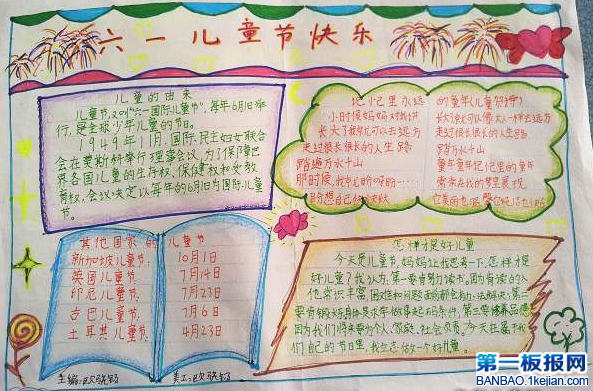 六一儿童节快乐
儿童的由来
儿童节,又叫"六一国际儿童节",每年6月1日举
行,是全球少年儿童的节日。
1949年11月,国际民主妇女联合
会在莫斯科举行理事会议,为了保障世
界各国儿童的生存权、保健权和受教
育权,会议决定以每年的6月1日为国际儿童
节。
记忆里永远
小时候妈妈对我讲
长大了我就可以去远方
走过很长很长的人生路
路遍万水千山
那时候,我常常盼呀盼……
盼想自己快快大
的童年(儿童
走过很长很长的人生路
路万水千山
童年童年记忆里的童年
其他国家的儿童节
新加坡儿童节: 10月1日
英国儿童节: 7月14日
印尼儿童节: 7月23日
古巴儿童节: 7月6日
土耳其儿童节: 4月23日
主编:欧
美工:欧
怎样才是好儿童
今天是儿童节,妈妈让我思考一下,怎样才是
好儿童了?我认为:第一要肯努力读书。因为有读的人
他常识丰富,困难和问题面前都会有办法解决;第二
要有锻炼好身体是求学做事起码条件,第三要修养品德
因为我们将来要为个人、家庭、社会负责,今天在属于我
们自己的节日里,我立志做一个好儿童。
第一板报网
BANBAO.1kejian.com